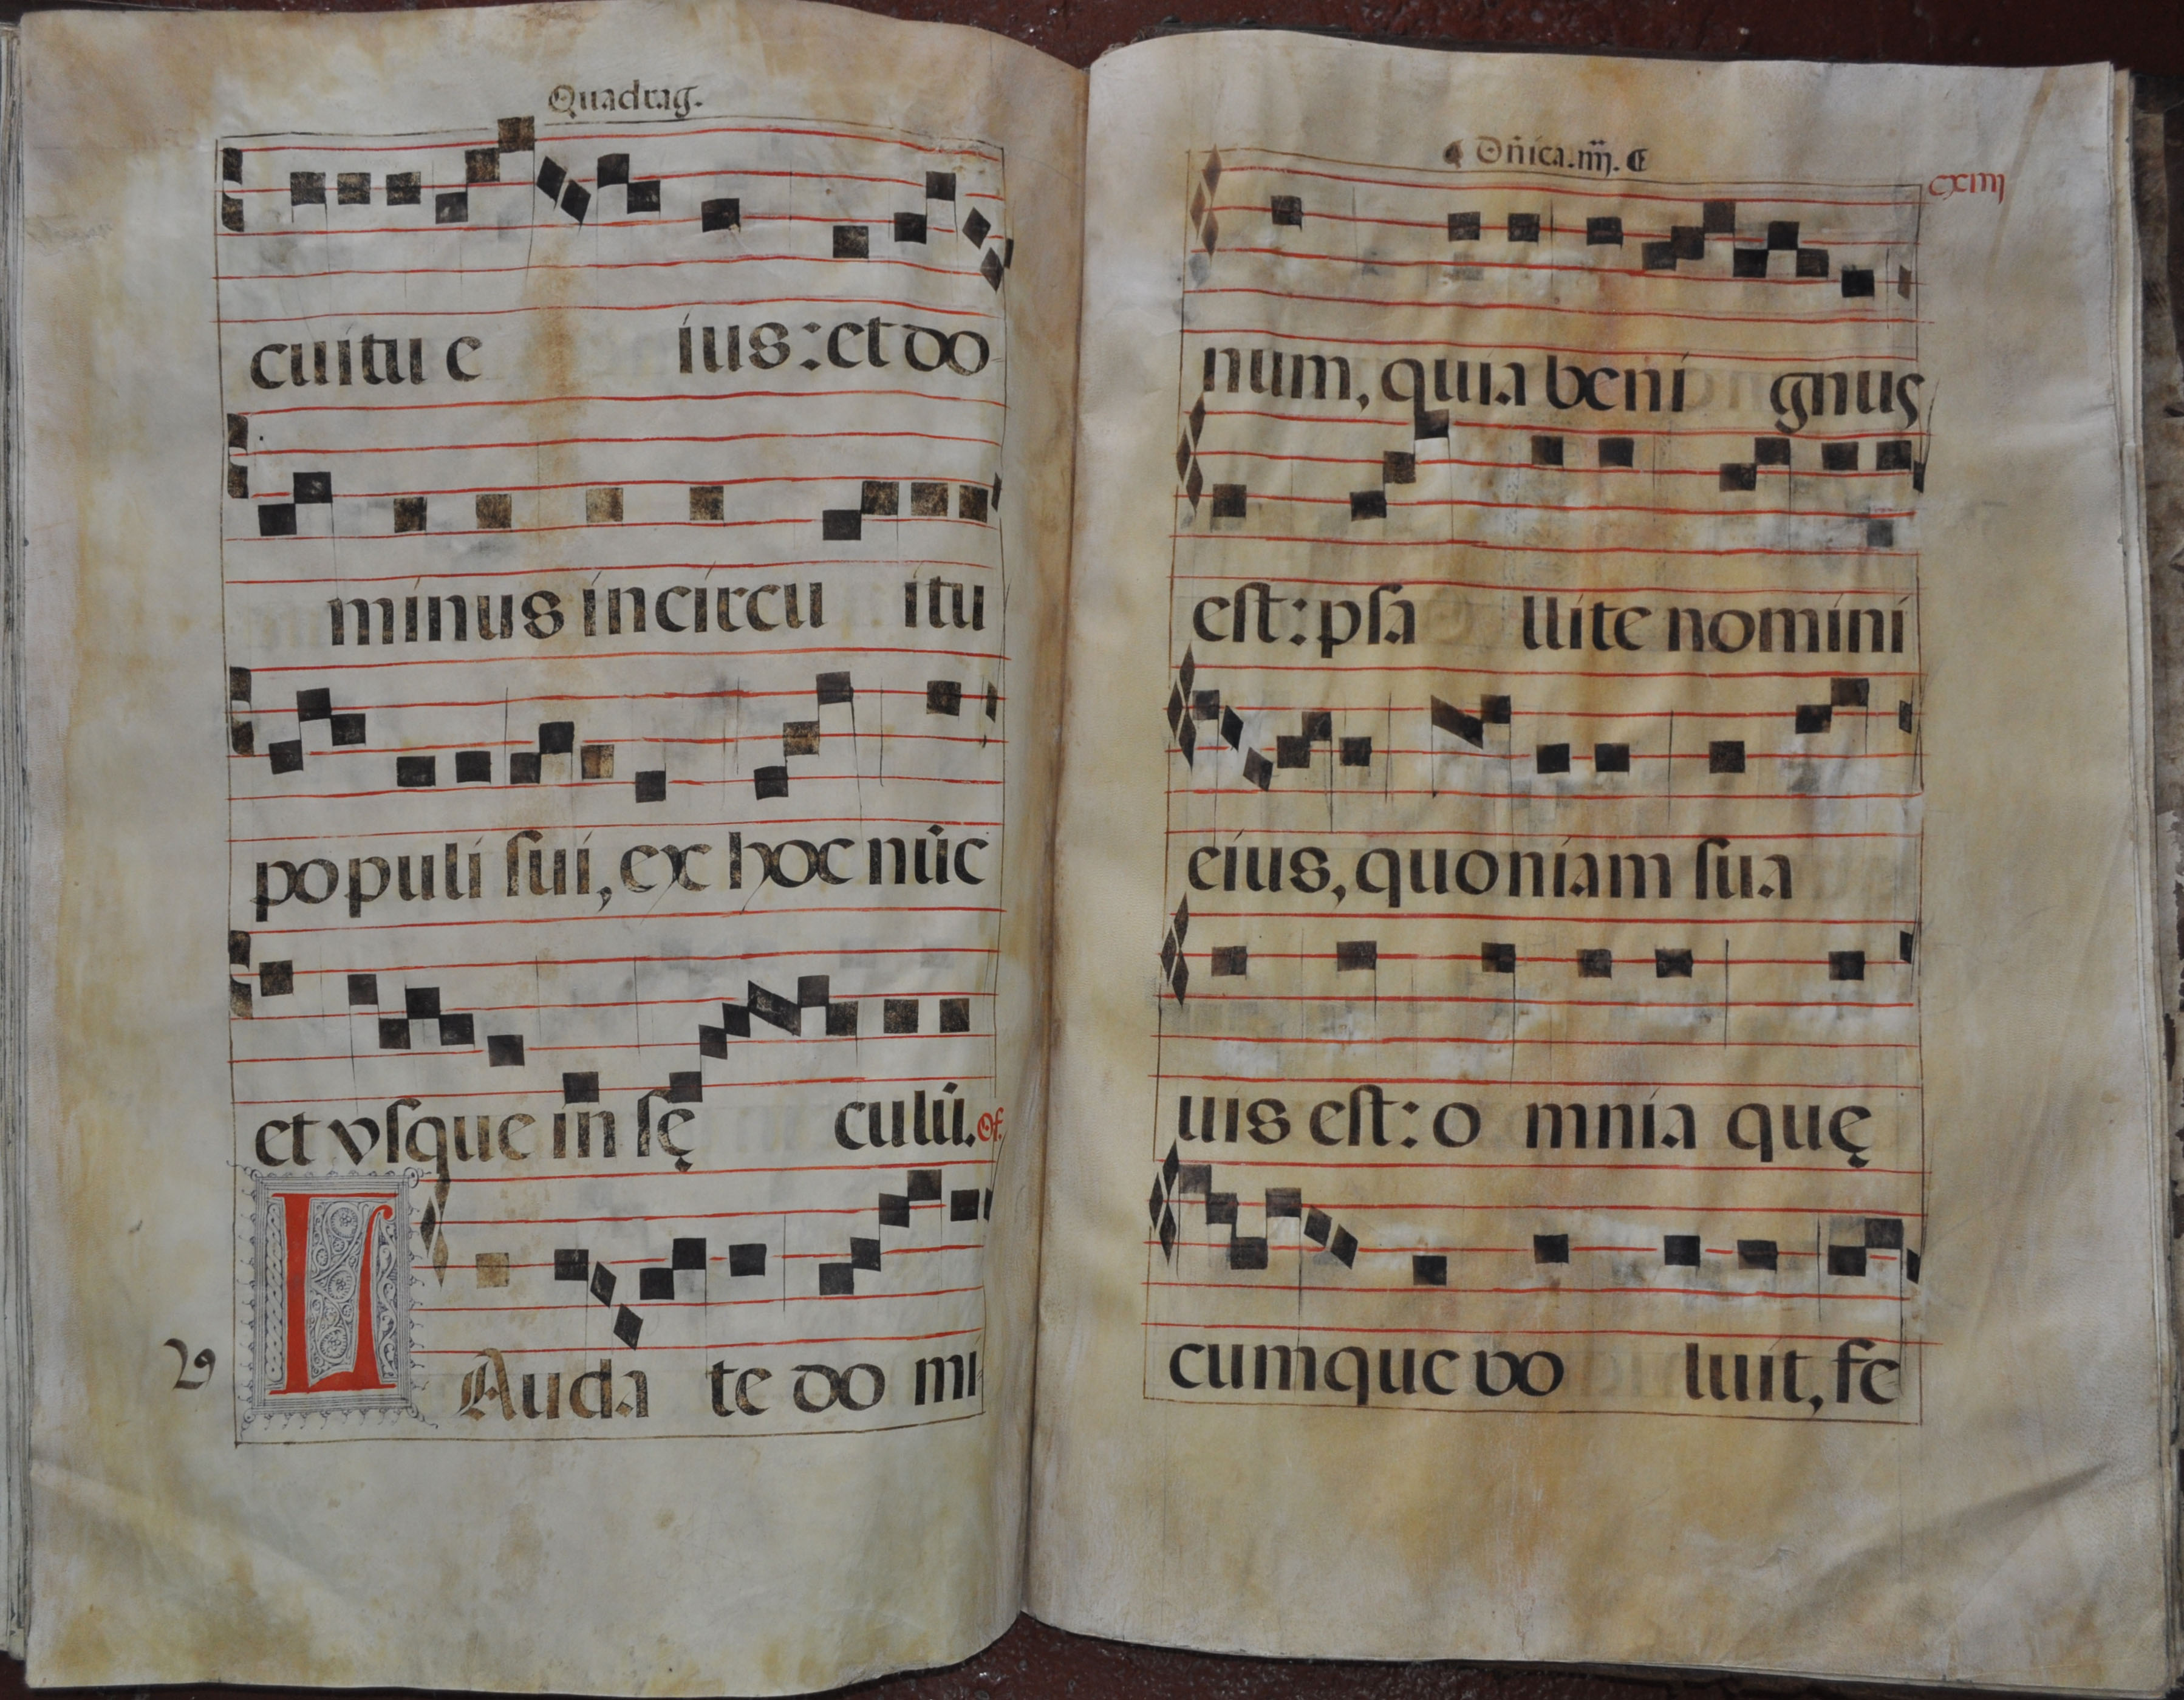 Quadrag.
cuitu e ius: et do
minus in circu itu
populi ſui, ex hoc nūc
et vſque in ſę culū. Of.
L
Auda te do mi-
29
Dñica. iiij.
cxiiij
num, quia beni gnus
eſt: pſa llite nomini
eius, quoniam ſua
uis eſt: o mnia quę
cumque vo luit, fe